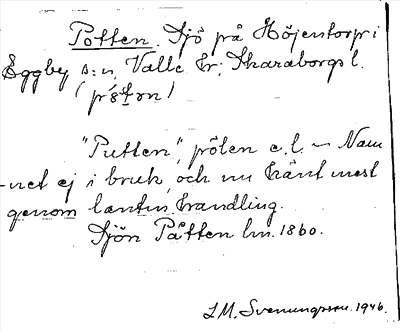 Potten. Sjö på Höjentorp i
Eggby s:n, Valle hr, Skaraborgs l.
"Putten", pölen e.l. – Nam-
net ej i bruk, och nu känt mest
genom lantm. handling.
Sjön Påtten lm. 1860.
S.M. Svenungsson. 1946.